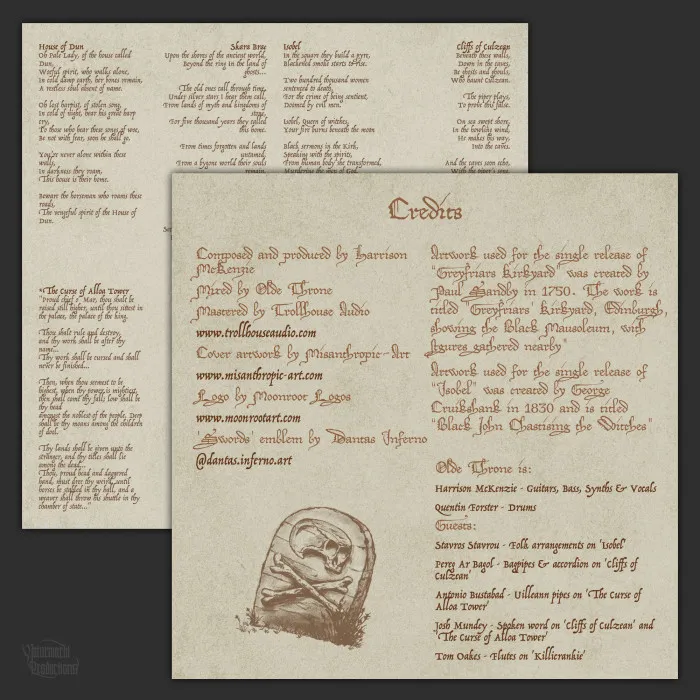 House of Dun
Oh Pale Lady, of the house called
Dun,
Woeful spirit, who walks alone,
In cold damp earth, her bones remain,
A restless soul absent of name.
Oh lost harpist, of stolen song,
In cold of night, hear his great harp
cry,
To those who hear these songs of woe,
Be not with fear, soon he shall go.
You're never alone within these
walls,
In darkness they roam,
This house is their home.
Beware the horseman who roams these
roads,
The vengeful spirit of the House of
Dun.
*The Curse of Alloa Tower
"Proud chief o' Mar, thou shalt be
raised still higher, until thou sittest in
the palace, the palace of the king.
Thou shalt rule and destroy,
and thy work shall be after thy
name...
Thy work shall be cursed and shall
never be finished...
Then, when thou seemest to be
highest, when thy power is mightiest,
then shall come thy fall; low shall be
thy head
amongst the noblest of the people. Deep
shall be thy moans among the children
of dool.
Thy lands shall be given unto the
stranger, and thy titles shall lie
among the dead...
Thou, proud head and daggered
hand, must dree thy weird, until
horses be stabled in thy hall, and a
weaver shall throw his shuttle in thy
chamber of state..."
Skara Brae
Upon the shores of the ancient world,
Beyond the ring in the land of
ghosts...
The old ones call through time,
Under silver stars I hear them call,
From lands of myth and kingdoms of
stone,
For five thousand years they called
this home.
From times forgotten and lands
untamed,
From a bygone world their souls
remain.
Isobel
In the square they build a pyre,
Blackened smoke starts to rise.
Two hundred thousand women
sentenced to death,
For the crime of being sentient,
Doomed by evil men.
Isobel, Queen of witches,
Your fire burns beneath the moon
Black sermons in the Kirk,
Speaking with the spirits,
From human body she transformed,
Murdering the men of God.
Cliffs of Culzean
Beneath these walls,
Down in the caves,
Be ghosts and ghouls,
Who haunt Culzean.
The piper plays,
To prove this false.
On sea swept shore,
In the howling wind,
He makes his way,
Into the caves.
And the caves soon echo,
Credits
Composed and produced by Harrison
McKenzie
Mixed by Olde Throne
Mastered by Trollhouse Audio
www.trollhouseaudio.com
Cover artwork by Misanthropic-Art
www.misanthropic-art.com
Logo by Moonroot Logos
www.moonrootart.com
'Swords' emblem by Dantas Inferno
@dantas.inferno.art
Artwork used for the single release of
"Greyfriars Kirkyard" was created by
Paul Sandby in 1750. The work is
titled "Greyfriars' Kirkyard, Edinburgh,
showing the Black Mausoleum, with
figures gathered nearby"
Artwork used for the single release of
"Isobel" was created by George
Cruikshank in 1830 and is titled
"Black John Chastising the Witches"
Olde Throne is:
Harrison McKenzie - Guitars, Bass, Synths & Vocals
Quentin Forster - Drums
Guests:
Stavros Stavrou - Folk arrangements on 'Isobel'
Pereg Ar Bagol - Bagpipes & accordion on 'Cliffs of
Culzean'
Antonio Bustabad - Uilleann pipes on 'The Curse of
Alloa Tower'
Josh Mundey - Spoken word on 'Cliffs of Culzean' and
'The Curse of Alloa Tower'
Tom Oakes - Flutes on 'Killiecrankie'
Naturmacht
Productions